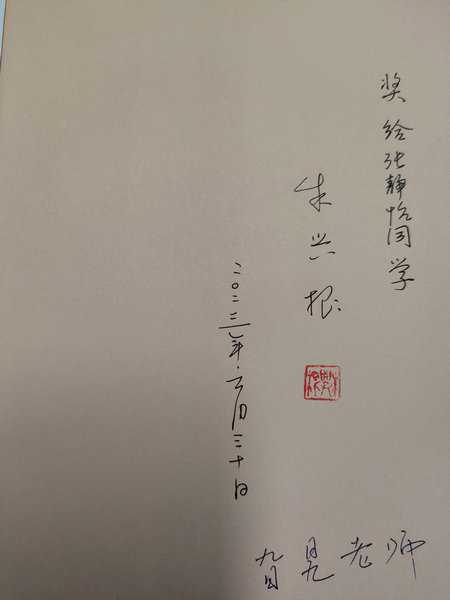 奖给张静怡同学
朱兴根
二〇二三年.六月三十日
旮旯老师